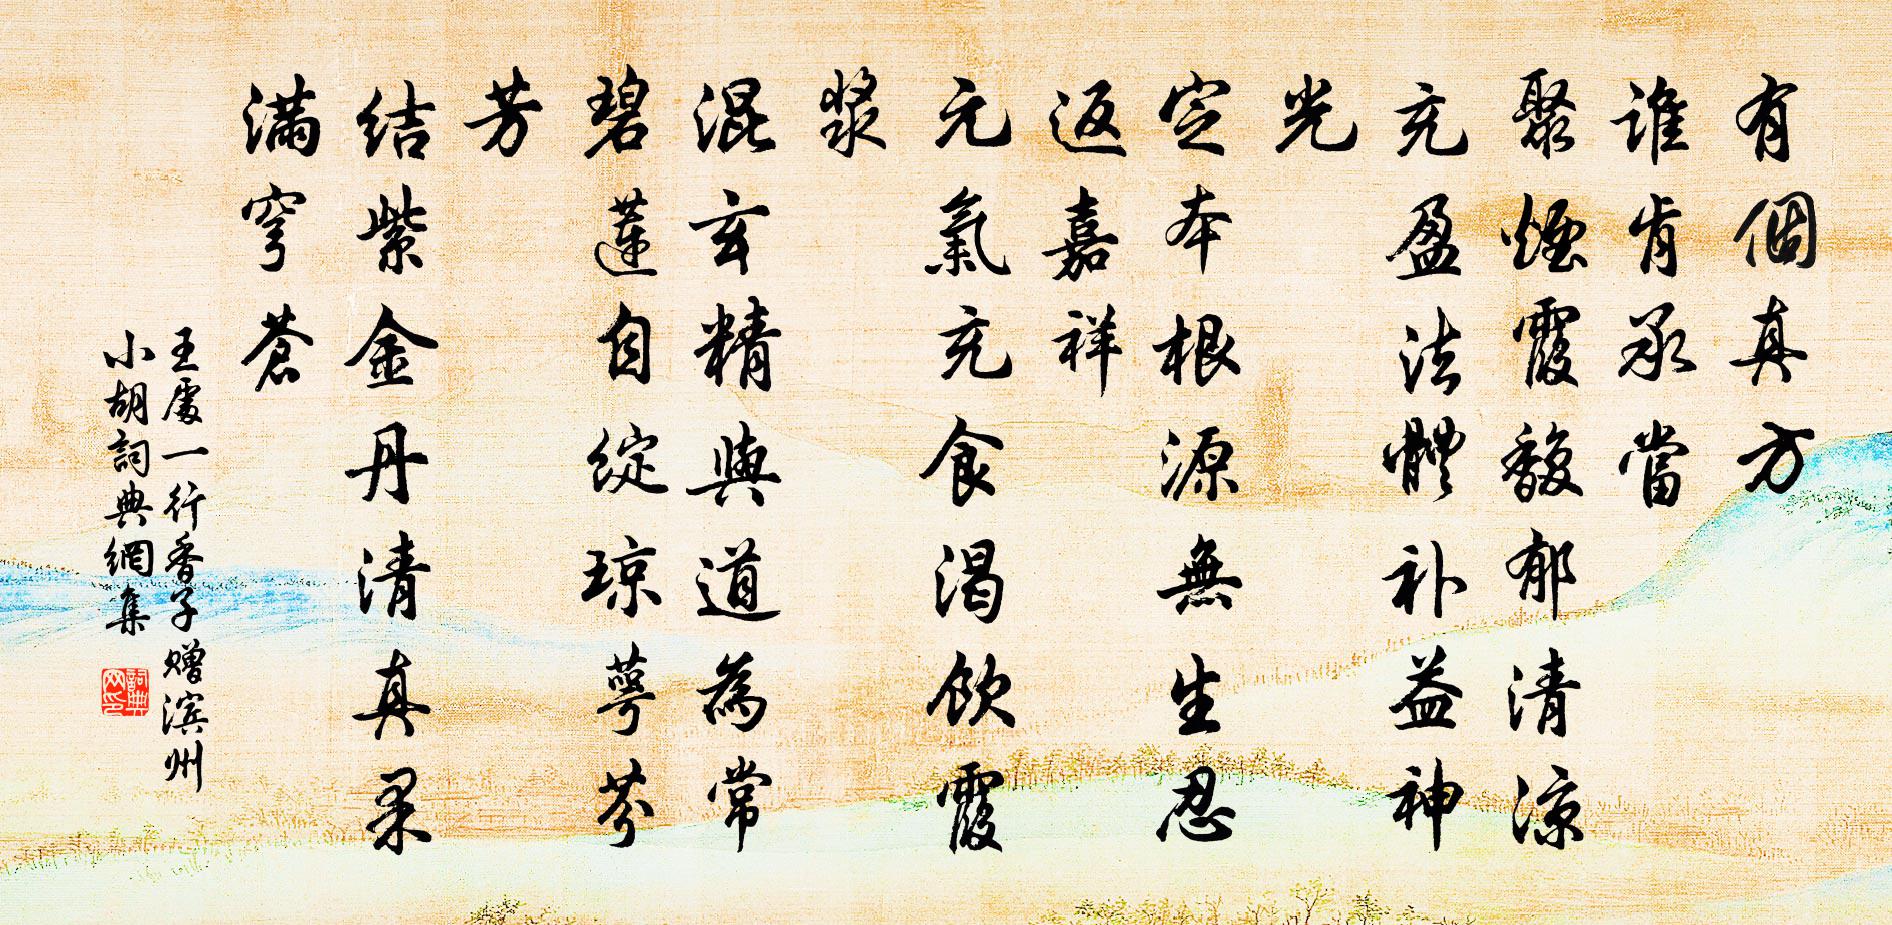 有個真方
谁肯承當
聚煙霞馥郁清涼
充盈法體补益神
光
定本根源無生忍
返嘉祥
元氣充食渴飲霞
漿
混玄精與道為常
碧蓮自綻琼萼芬
芳
结紫金丹清真柔
满穹蒼
王處一行香子赠滨州
小胡詞典網集
詞典网印